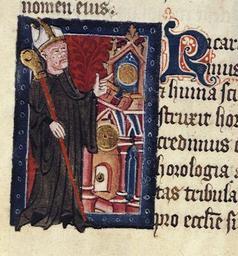 nomen eius.
Ricar
mus
humna sci
struxit hor
credimus
horologia
tas tribula
pro ecclie